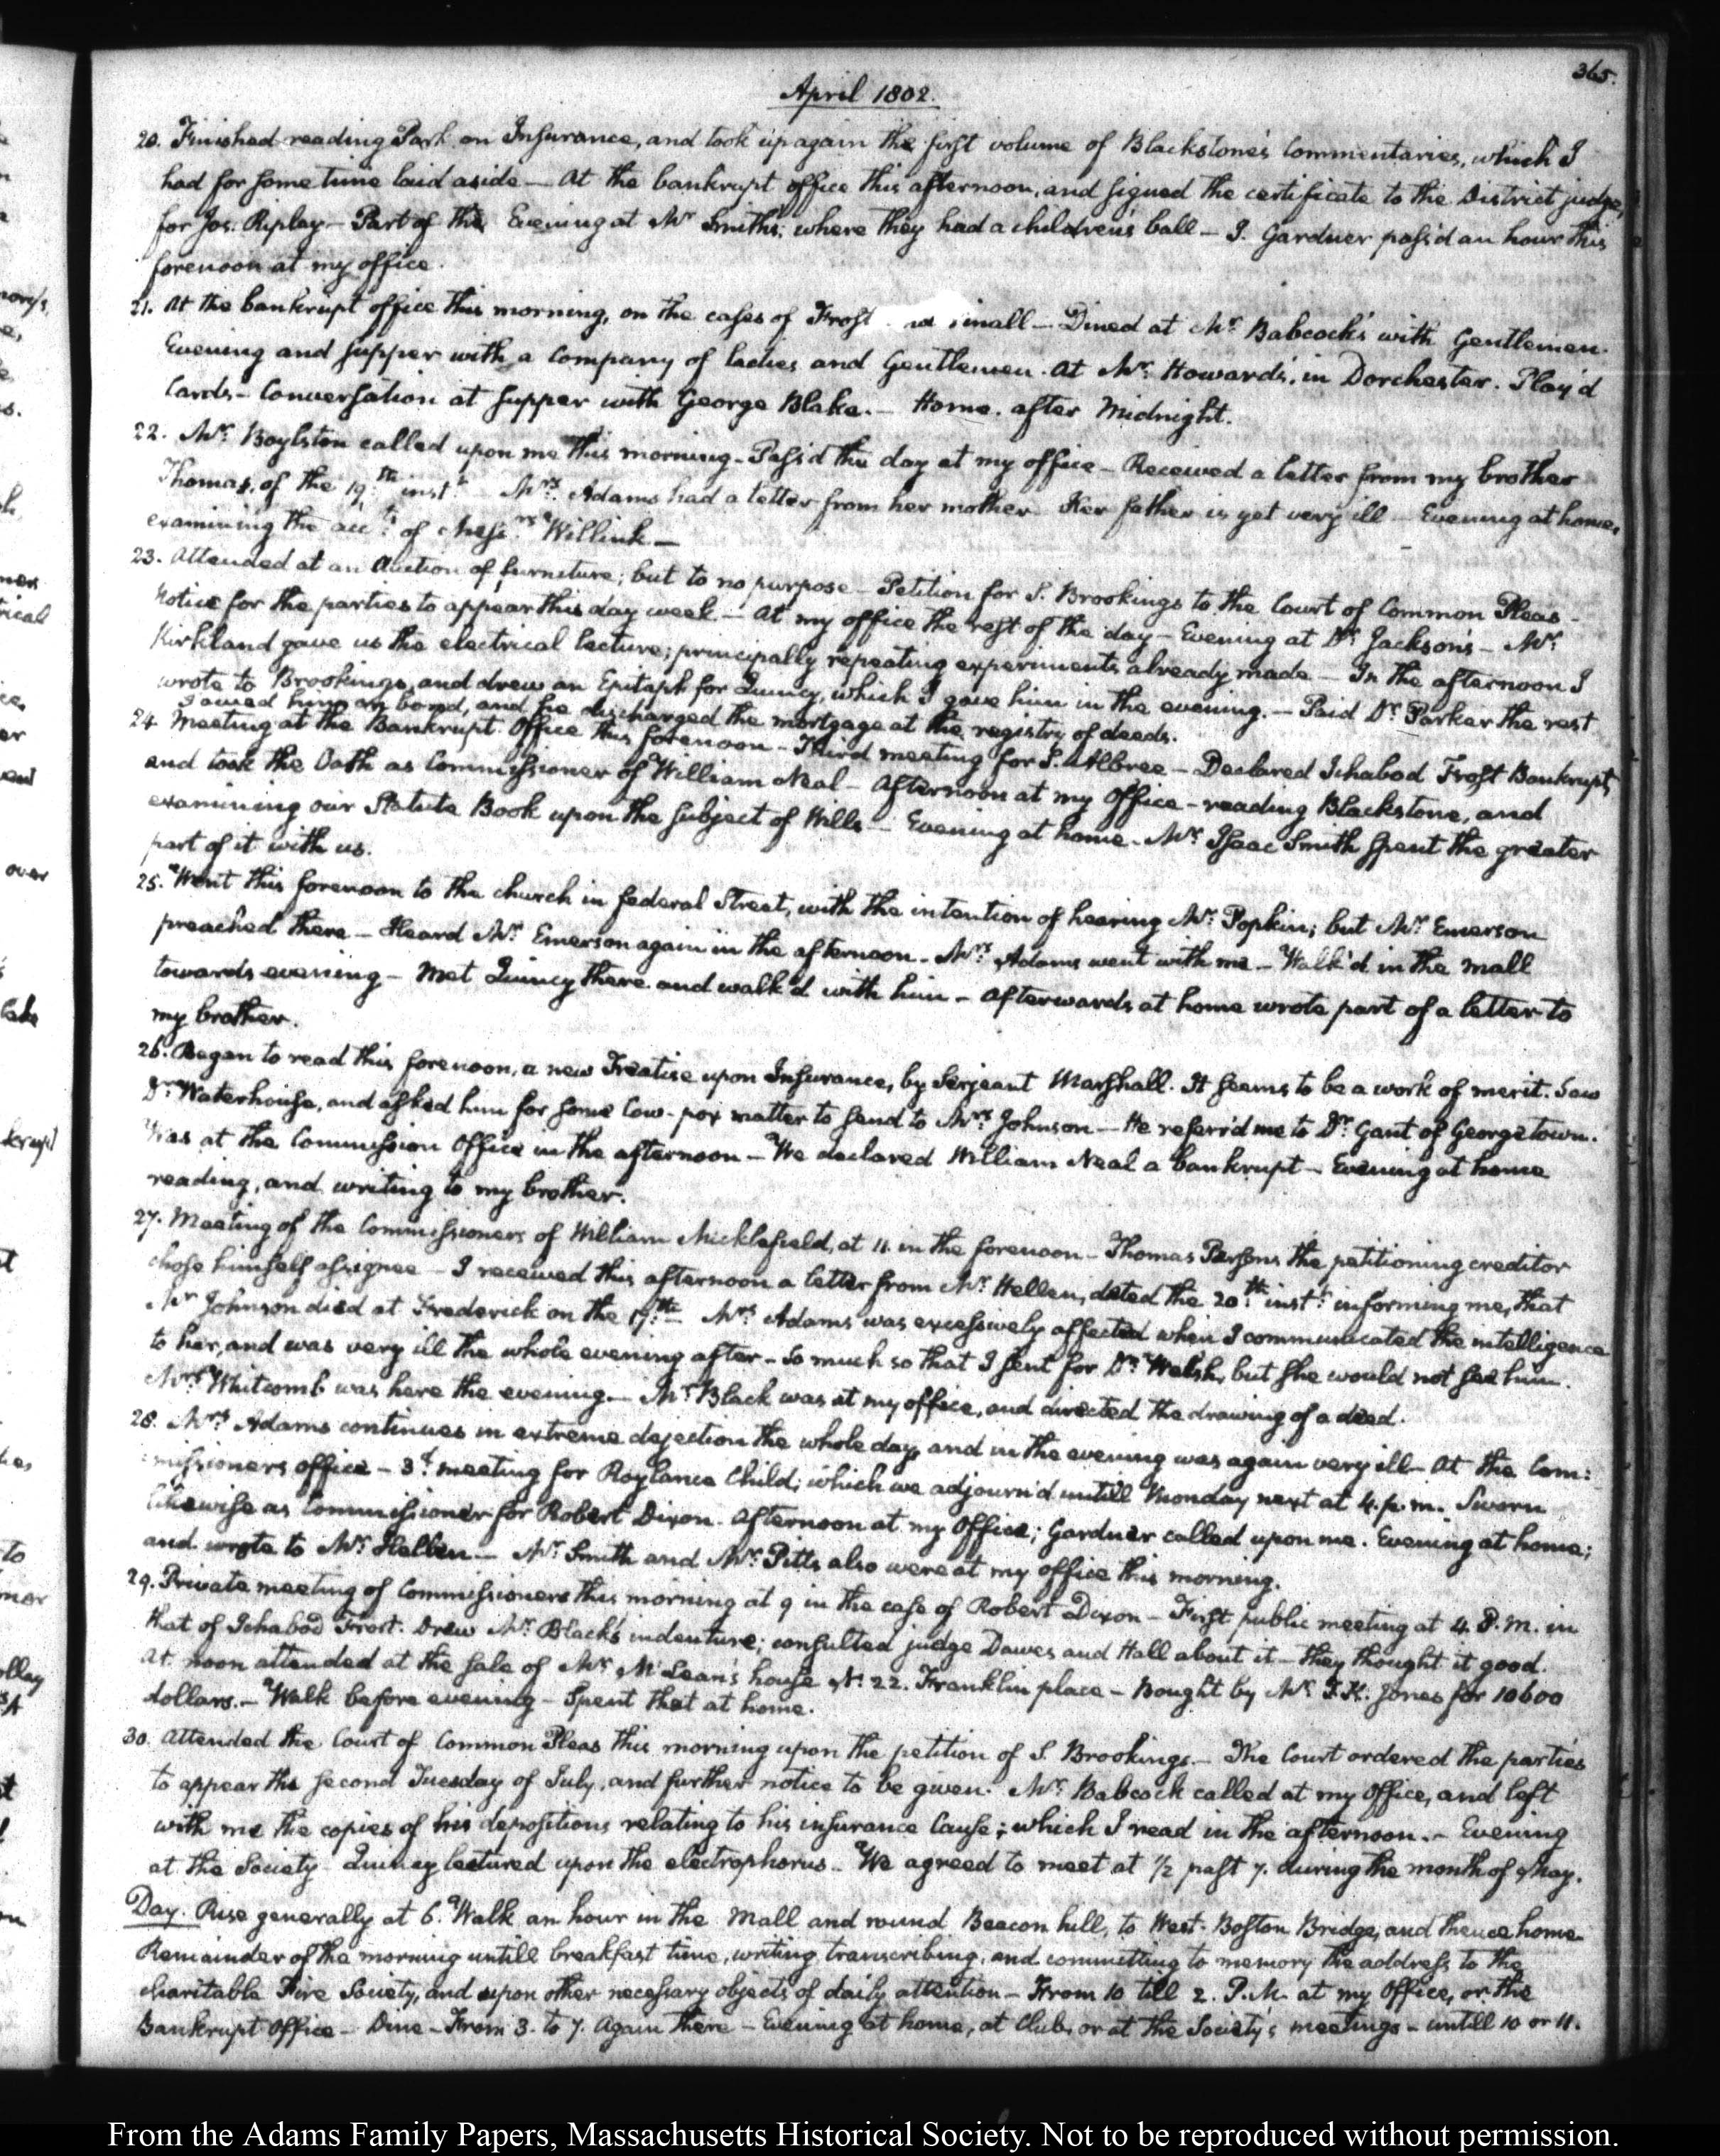 365.
April 1802.
20. Finished reading Park on Insurance, and took up again the first volume of Blackstone's Commentaries, which I
had for some time laid aside — At the bankrupt office this afternoon, and signed the certificate to the District judge,
for Jos. Ripley — Part of the Evening at Mr Smith's; where they had a children's ball — J. Gardner pass'd an hour this
forenoon at my office.
21. At the bankrupt office this morning, on the cases of Frost small — Dined at Mr Babcock's with Gentlemen.
Evening and supper with a Company of ladies and Gentlemen. At Mr Howard's, in Dorchester. Play'd
Cards — Conversation at supper with George Blake. — Home after Midnight.
22. Mr Boylston called upon me this morning — Pass'd the day at my office — Received a letter from my brother
Thomas, of the 19th inst Mrs Adams had a letter from her mother Her father is yet very ill — Evening at home,
examining the acct of Messrs Willink —
23. Attended at an Auction of furniture; but to no purpose — Petition for S. Brookings to the Court of Common Pleas —
Notice for the parties to appear this day week — At my office the rest of the day — Evening at Dr Jackson's — Mr
Kirkland gave us the electrical lecture; principally repeating experiments already made — In the afternoon I
wrote to Brookings, and drew an Epitaph for Quincy, which I gave him in the evening. — Paid Dr Parker the rest
I owed him on bond, and he discharged the mortgage at the registry of deeds.
24 Meeting at the Bankrupt Office this forenoon — Third meeting for S. Albree — Declared Ichabod Frost Bankrupt,
and took the Oath as Commissioner of William Neal — Afternoon at my Office — reading Blackstone, and
examining our Statute Book upon the subject of Wills — Evening at home. Mr Isaac Smith spent the greater
part of it with us.
25. Went this forenoon to the church in federal Street, with the intention of hearing Mr Popkin; but Mr Emerson
preached there — Heard Mr Emerson again in the afternoon. Mrs Adams went with me — Walk'd in the mall
towards evening — Met Quincy there and walk'd with him — Afterwards at home wrote part of a letter to
my brother.
26. Began to read this forenoon, a new Treatise upon Insurance, by Serjeant Marshall. It seems to be a work of merit. Saw
Dr Waterhouse, and asked him for some Cow-pox matter to send to Mrs Johnson — He referr'd me to Dr Gant of Georgetown.
Was at the Commission Office in the afternoon — We declared William Neal a bankrupt — Evening at home
reading, and writing to my brother.
27. Meeting of the Commissioners of William Micklefield, at 11. in the forenoon — Thomas Parsons the petitioning creditor
chose himself assignee — I received this afternoon a letter from Mr Hellen, dated the 20th inst informing me, that
Mr Johnson died at Frederick on the 17th — Mrs Adams was excessively affected when I communicated the intelligence
to her, and was very ill the whole evening after — So much so that I sent for Dr Welsh, but she would not see him.
Mrs Whitcomb was here the evening — Mr Black was at my office, and directed the drawing of a deed.
28. Mrs Adams continues in extreme dejection the whole day, and in the evening was again very ill — At the Com:
missioners office — 3d meeting for Roylance Child; which we adjourn'd untill Monday next at 4. p.m. Sworn
likewise as Commissioner for Robert Dixon. Afternoon at my Office; Gardner called upon me. Evening at home;
and wrote to Mr Hellen — Mr Smith and Mr Pitts also were at my office this morning.
29. Private meeting of Commissioners this morning at 9 in the case of Robert Dixon — First public meeting at 4. P.M. in
that of Ichabod Frost. Drew Mr Black's indenture; consulted judge Dawes and Hall about it — they thought it good.
At noon attended at the sale of Mrs McLean's house N. 22. Franklin place — Bought by Mr T. K. Jones for 10600
dollars. — Walk before evening — Spent that at home.
30. Attended the Court of Common Pleas this morning upon the petition of S. Brookings. — The Court ordered the parties
to appear the second Tuesday of July, and further notice to be given. Mr Babcock called at my Office, and left
with me the copies of his depositions relating to his insurance Cause; which I read in the afternoon. — Evening
at the Society — Quincy lectured upon the electrophorus. We agreed to meet at 1/2 past 7. during the month of May.
Day. Rise generally at 6. Walk an hour in the Mall and round Beacon hill, to West-Boston Bridge, and thence home.
Remainder of the morning untill breakfast time, writing, transcribing, and committing to memory the address to the
charitable Fire Society, and upon other necessary objects of daily attention — From 10 till 2. P.M. at my Office, or the
Bankrupt Office — Dine — From 3. to 7. Again there — Evening at home, at Club, or at the Society's meetings — untill 10 or 11.
From the Adams Family Papers, Massachusetts Historical Society. Not to be reproduced without permission.